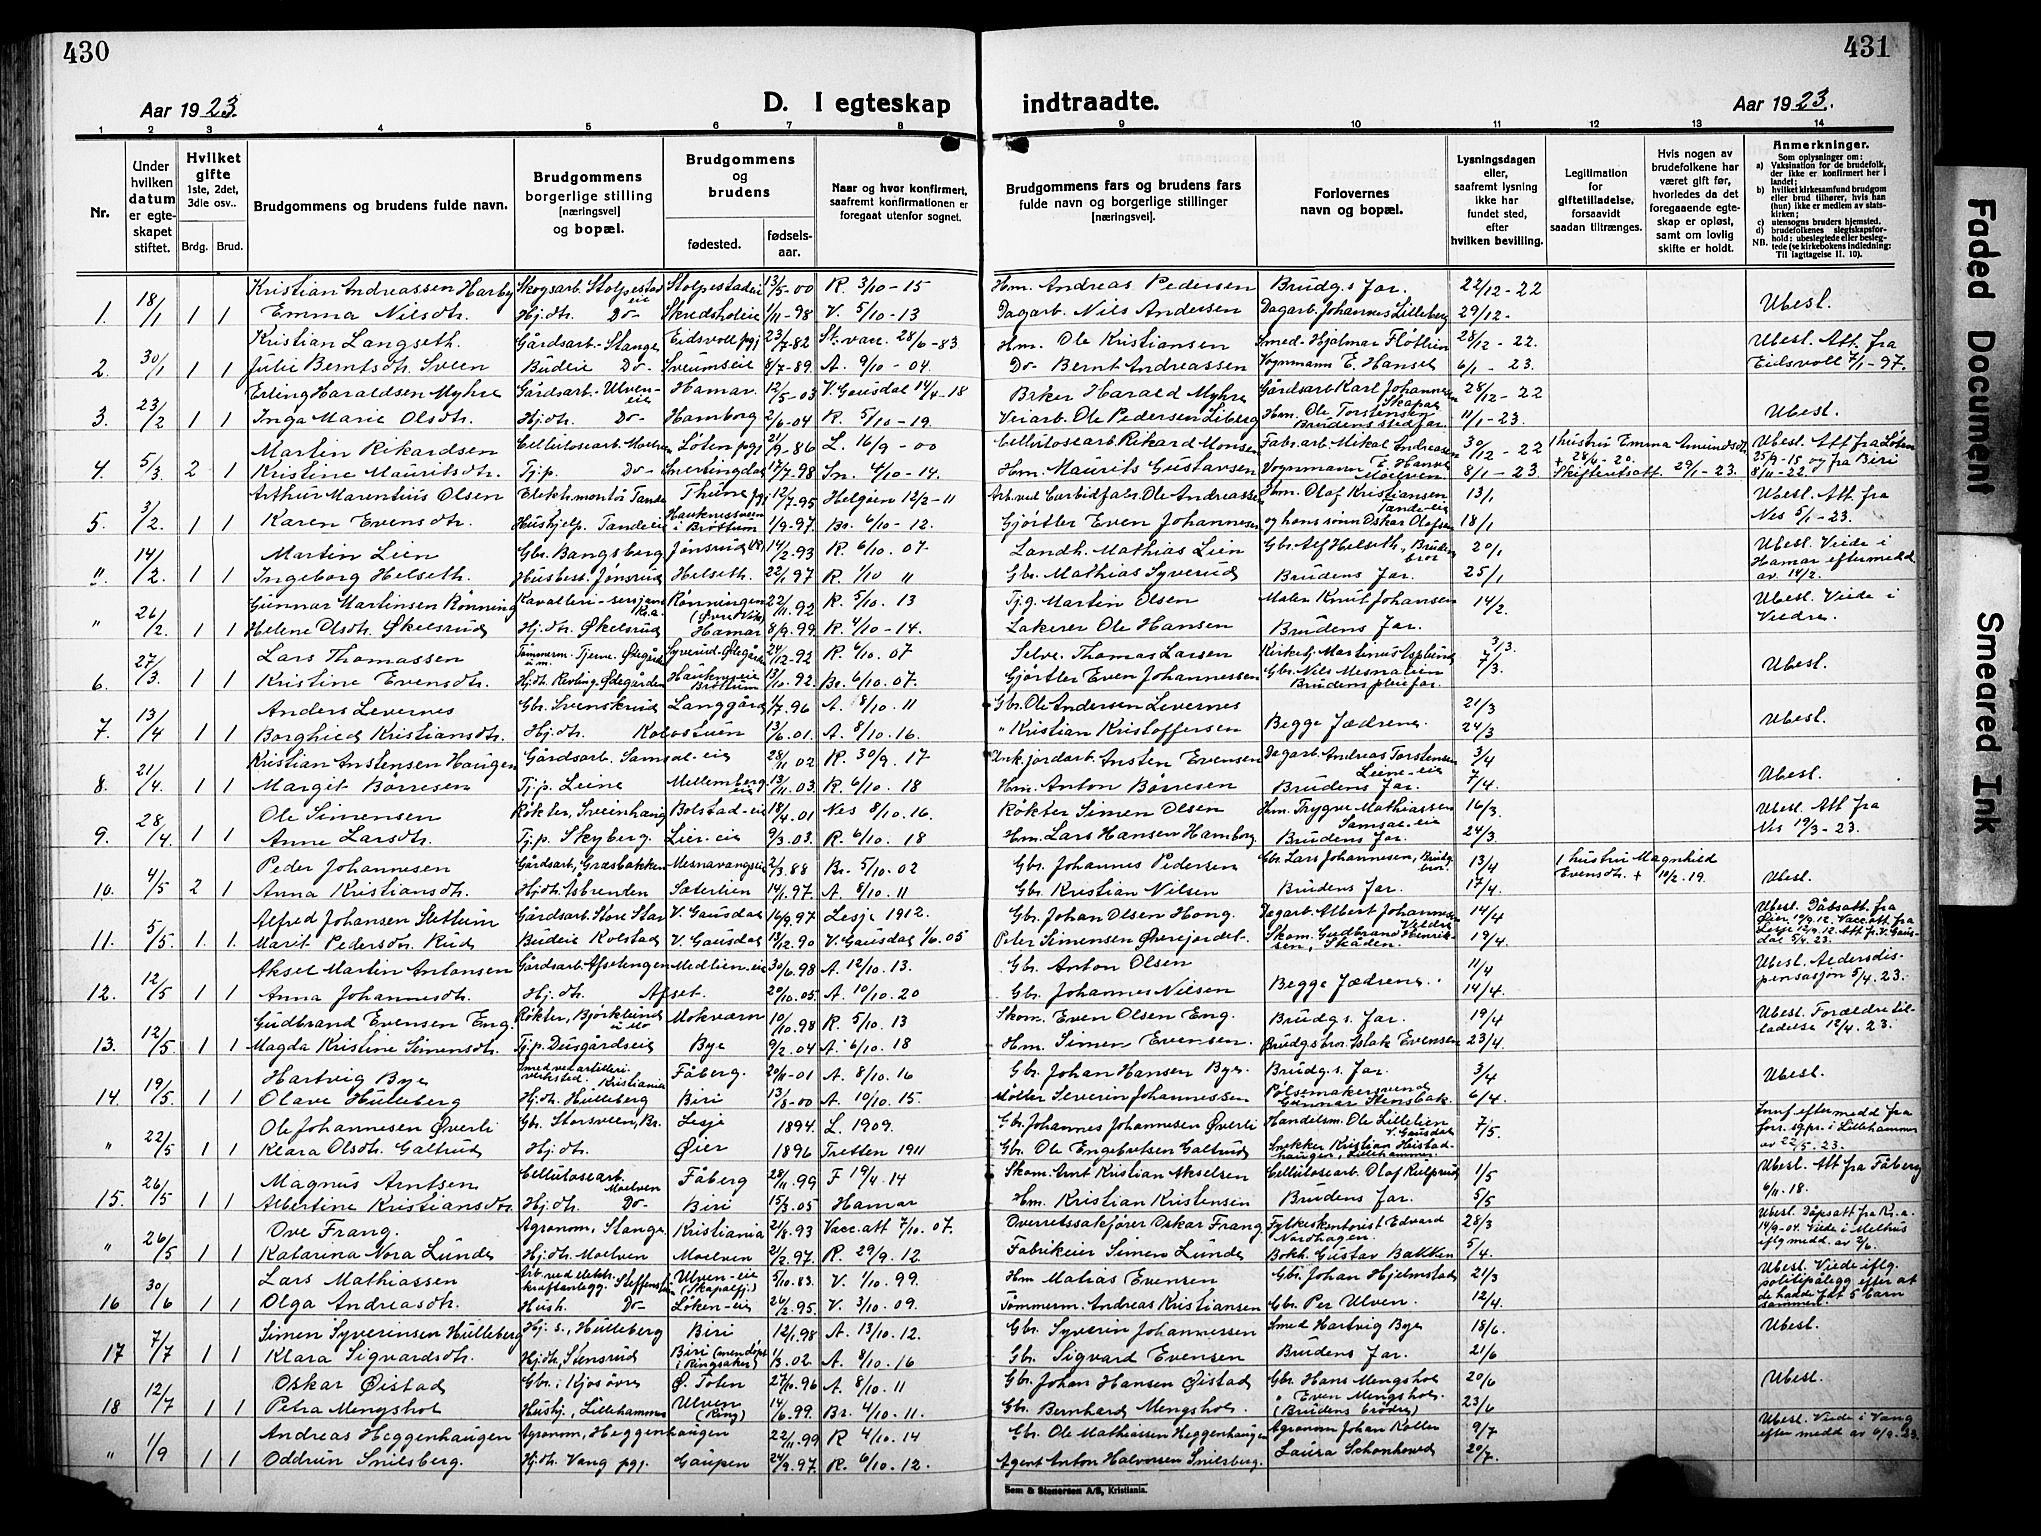 430
431
Aar 1923.
D. I egteskap
indtraadte.
Aar 1923.
1 2 3 4 5 6 7 8 9 10 11 12 13 14
Nr.
Under hvilken datum er egteskapet stiftet.
Hvilket gifte 1ste, 2det, 3die osv..
Brdg. Brud.
Brudgommens og brudens fulde navn.
Brudgommens borgerlige stilling [næringsvei] og bopæl.
Brudgommens og brudens
fødested.
fødselsaar.
Naar og hvor konfirmert, saafremt konfirmationen er foregaat utenfor sognet.
Brudgommens fars og brudens fars fulde navn og borgerlige stillinger [næringsvei].
Forlovernes navn og bopæl.
Lysningsdagen eller, saafremt lysning ikke har fundet sted, efter hvilken bevilling.
Legitimation for giftetilladelse, forsaavidt saadan tiltrænges.
Hvis nogen av brudefolkene har været gift før, hvorledes da det foregaaende egteskap er opløst, samt om lovlig skifte er holdt.
Anmerkninger.
Som oplysninger om:
a) Vaksination for de brudefolk, der ikke er konfirmert her i landet;
b) hvilket kirkesamfund brudgom eller brud tilhører, hvis han (hun) ikke er medlem av statskirken;
c) utensogns bruders hjemsted.
d) brudefolkenes slegtskapsforhold: ubeslegtede eller beslegtede (se kirkebokens indledning: Til Iagttagelse II. 10).
NB.
Kristian Andreassen Harby Skogsarb. Stolpestad eie Stolpestadeie 13/5-00 R. 3/10-15 Hm. Andreas Pedersen Brudg.s far. 22/12-22
1. 18/1 1 1 Emma Nilsdtr. Hj.dtr. Do- Skredsholeie 1/11-98 V. 5/10-13 Dagarb. Nils Andersen Dagarb. Johannes Lilleberg 29/12- Ubesl.
Kristian Langseth. Gårdsarb. Stange Eidsvoll pgj 23/7-82 St. vacc. 28/6-83 Hm. Ole Kristiansen Smed. Hjalmar Fløtlien 28/12-22. Ubesl. Att. fra
2. 30/1 1 1 Julie Berntsdtr. Sveen Budeie Do- Sveumseie 8/7-89. A. 9/10-04 Do- Bernt Andreassen Vognmann E. Hansel 6/1-23. Eidsvoll 7/1-97.
Erling Haraldsen Myhre Gårdsarb. Ulven-eie Hamar. 12/5-03 V. Gausdal 14/4-18 Baker Harald Myhre Gårdsarb Karl Johannesen Skapal 28/12-22
3. 23/2 1 1 Inga Marie Olsdtr. Hj.dtr. Do- Hamborg 2/6-04 R. 5/10-19. Veiarb. Ole Pedersen Liberg Hm. Ole Torstensen Brudens stedfar. 11/1-23. Ubesl.
Martin Rikardsen Cellulosearb. Moelven Løten pgj 21/9-86 L. 16/9-00 Cellulosearb. Rikard Monsen Fabr.arb. Mikal Andreassen 30/12-22 1 hustru Emma Amundsdtr. Ubesl. Att fra Løten
4. 5/3 2 1 Kristine Mauritsdtr. Tj.p. Do- Snertingdal 17/7-98 Sn. 4/10-14. Hm. Maurits Gustavsen Vognmann E. Hansel Moelven. 8/1-23 + 28/4-20. Skifteretsatt. 29/1-23. 25/9-15 og fra Biri 8/11-22
Arthur Marentius Olsen Elektr.montør Tande Thune pgj 12/7-95 Helgøen 12/2-11 Arb. ved Carbidfabr. Ole Andreassen Hm. Olaf Kristiansen Tande-eie 13/1 Ubesl. Att. fra
5. 3/2. 1 1 Karen Evensdtr. Hushjelp. Tandeeie i Brøttum 1/9-97 Br. 6/10-12. Gjørtler Even Johannesen og hans sønn Oskar Olafsen 18/1 Nes 5/1-23.
Martin Lien Gbr. Bangsberg Jønsrud 14/2.93 R. 6/10.07 Landh. Mathias Lien Gbr. Alf Helseth, Brudens bror 20/1 Ubesl. Viede i
" 14/2. 1 1 Ingeborg Helseth. Husbest. Jønsrud Helseth. 22/1.97 R. 1/10 11 Gbr. Mathias Syverud Brudens far. 25/1 Hamar eftermedd av. 14/2.
Gunnar Martinsen Rønning Kavalleri-sersjant Kr.a. Rønningen 22/11.92 R. 5/10.13 Tj.g. Martin Olsen Maler Knut Johansen 14/2. Ubesl. Viede i
" 26/2. 1 1 Helene Olsdtr. Økelsrud Hj.dtr. Økelsrud Hamar 8/9.99 R. 4/10-14. Lakerer Ole Hansen Brudens far. Veldre.
Lars Thomassen Tømmerm. Tjerne Ødegård u.m. Syverud. Ødegården 24/12-92 R. 4/10.07 Selve. Thomas Larsen Kirketj. Martinus Asplund 3/3. Ubesl.
6. 27/3. 1 1 Kristine Evensdtr. Hj.dtr. Ødegården Brøttum 13/10.92 Br. 6/10.07. Gjørtler Even Johannessen Gbr. Nils Mesnalien Brudens pleiefar. 7/3.
Anders Levernes Gbr. Svenskrud Langgård 1/7.96 A. 8/10.11 Gbr. Ole Andersen Levernes 21/3
7. 13/4 1 1 Borghild Kristiansdtr. Hj.dtr. Kolostuen 13/6.01. A. 8/10.16. " Kristian Kristoffersen Begge fædrene. 24/3 Ubesl.
Kristian Anstensen Haugen Gårdsarb. Samsal-eie 28/11 02 R. 30/9.17 Ansten Evensen Dagarb. Andreas Torstensen Leine-eie 3/4
8. 21/4. 1 1 Margit Børresen Tj.p. Leine Mellemberg eie 13/11.03. R. 6/10.18 Hm. Anton Børresen Brudens far. 7/4. Ubesl.
Ole Simensen Røkter, Sveinhaug Bolstad-eie 18/4.01 Nes 8/10.16. Røkter Simen Olsen Hm. Trygve Mathiassen Samsal-eie 16/3. Ubesl. Att fra
9. 28/4. 1 1 Anne Larsdtr. Tj.p. Skyberg. Lier-eie 9/3.03. R. 6/10.18 Hm. Lars Hansen Hamborg Brudens far. 24/3. Nes 19/3-23.
Peder Johannesen Gårdsarb. Græsbakken Mesnavangseie 2/3.88 Br. 5/10.02 Gbr. Johannes Pedersen Gbr. Lars Johannesen, Brudg. bror. 13/4 1 hustru Magnhild
10. 4/5 2 1 Anna Kristiansdtr. Hj.dtr. Åsbrenden Sæterlien 14/1.97. A. 8/10.11 Gbr. Kristian Nilsen Brudens far. 17/4. Evensdtr. + 10/2.19. Ubesl.
Alfred Johansen Slettum Gårdsarb. Store Star V. Gausdal 16/9.97 Lesje 1912. Gbr. Johan Olsen Hong. Dagarb. Albert Johannesen Veldre 14/4 Ubesl. Dåbsatt. fra
11. 5/5. 1. 1. Marit Pedersdtr. Rud Budeie Kolstad V. Gausdal 19/2.90 V. Gausdal 1/6.05 Peter Simensen Øverejordet. Skom. Gudbrand Henriksen, Skåden. 19/4. Øier 19/9.12. Vacc.att. fra Lesje 12/9.12. Att. p. V. Gausdal 5/4.23.
Aksel Martin Antonsen Gårdsarb. Afsetengen Medlien-eie 30/6.98 A. 12/10.13. Gbr. Anton Olsen 11/4 Ubesl. Aldersdis-
12. 12/5 1 1 Anna Johannesdtr. Hj.dtr. Afset. 20/10.05. A. 10/10.20 Gbr. Johannes Nilsen Begge fædrene. 14/4. pensasjon 5/4.23.
Gudbrand Evensen Eng. Røkter, Bjørklund u. Mo Mokvarn 10/10.98 R. 5/10.13 Skom. Even Olsen Eng. Brudg.s far. 19/4 Ubesl. Forældretil-
13. 12/5. 1 1 Magda Kristine Simensdtr. Tj.p. Dusgårdseie Bye 9/2.04 A. 6/10.18 Hm. Simen Evensen. Brudg.bror. Islak Evensen 23/4. ladelse 12/4.23.
Hartvig Bye Smed ved artilleriverksted. Kristiania Fåberg. 20/11-01 A. 8/10.16 Gbr. Johan Hansen Bye. Brudg.s far. 3/4 Ubesl.
14. 19/5. 1 1 Olave Hulleberg Hj.dtr. Hulleberg Biri 13/8-00 A. 10/10.15. Møller Severin Johannessen Pølsemakersvend Gunnar Stensbak. 6/4.
Ole Johannesen Øverli Gbr. Storsveen, Br. Lesje 1894. L. 1909. Gbr. Johannes Johannesen Øverli Handelsm. Ole Lillelien V. Gausdal 7/5. Innf. eftermedd fra
" 22/5 1 1 Klara Olsdtr. Galtrud Hj.dtr. Øier 1896 Tretten 1911 Gbr. Ole Engebretsen Galtrud Snekker Kristian Heistadhaugen, Lillehammer. for. sgpr. i Lillehammer av 22/5.23.
Magnus Arntsen Cellulosearb. Moelven Fåberg 28/11.99 F 19/4.14 Skom. Arnt Kristian Akselsen Cellulosearb. Olaf Kulprud 1/5 Ubesl. Att fra Fåberg
15. 26/5 1 1 Albertine Kristiansdtr. Hj.dtr. Do- Biri 15/3.05 Hamar Hm. Kristian Kristensen Brudens far. 5/5 6/11.18.
Ove Frang. Agronom, Stange Kristiania 21/8.93 Vacc.att 7/10.07. Overretssakfører Oskar Frang Fylkeskontorist Edvard Nordhagen. 28/3 Ubesl. Dåpsatt fra Kr.a.
" 26/5 1 1 Katarina Nora Lunde Hj.dtr. Moelven Moelven 21/2.97. R. 29/9.12 Fabrikeier Simen Lunde Bokh. Gustav Bakken 5/4. 14/9-04. Viede i Melhus iflg medd. av 2/6.
Lars Mathiassen Arb. ved elektr. kraftanlegg. Steffens Ulven-eie 5/10.83. V. 1/10.99. Hm Matias Evensen Gbr. Johan Hjelmstad 21/3 Ubesl. Viede iflg.
16 30/6 1 1 Olga Andreasdtr. Hush. Do- Løken-eie 26/2.95. V. 3/10.09. Tømmerm. Andreas Kristiansen Gbr. Per Ulven. 12/4. politipålegg efter at de hadde fåt 5 barn sammen.
Simen Syverinsen Hulleberg Hj.s., Hulleberg Biri 12/1.98 A. 13/10.12. Gbr. Syverin Johannessen Smed Hartvig Bye 18/6. Ubesl.
17 7/7 1 1 Klara Sigvardsdtr. Hj.dtr. Stensrud Biri (men døpt i Ringsaker) 1/3.02. A. 8/10.16 Gbr. Sigvard Evensen Brudens far. 21/6
Oskar Øistad Gbr. i Kjosøvre Ø. Toten 27/10.96 A. 8/10.11 Gbr. Johan Hansen Øistad Gbr. Hans Mengshol 20/6 Ubesl.
18 12/7 1 1 Petra Mengshol Hushj., Lillehammer Ulven (Ring) 14/6.99. Br. 4/10.11. Gbr. Bernhard Mengshol. " Even Mengshol. (Brudens brødre) 23/6
Andreas Heggenhaugen Agronom, Heggenhaugen 22/11.99 R 4/10.14 Gbr. Ole Mathiassen Heggenhaugen Agronom Johan Koller 9/7 Ubesl. Viede i Vang
" 1/9 1 1 Oddrun Snilsberg. Hj.dtr. Vang pgj. Gaupen 24/9.97. R. 6/10.12. Agent Anton Halvorsen Snilsberg. Laura Schonhowd 20/7. efter medd av 6/9.23.
Sem & Stenersen A/S, Kristiania.
Faded Document
Smeared Ink